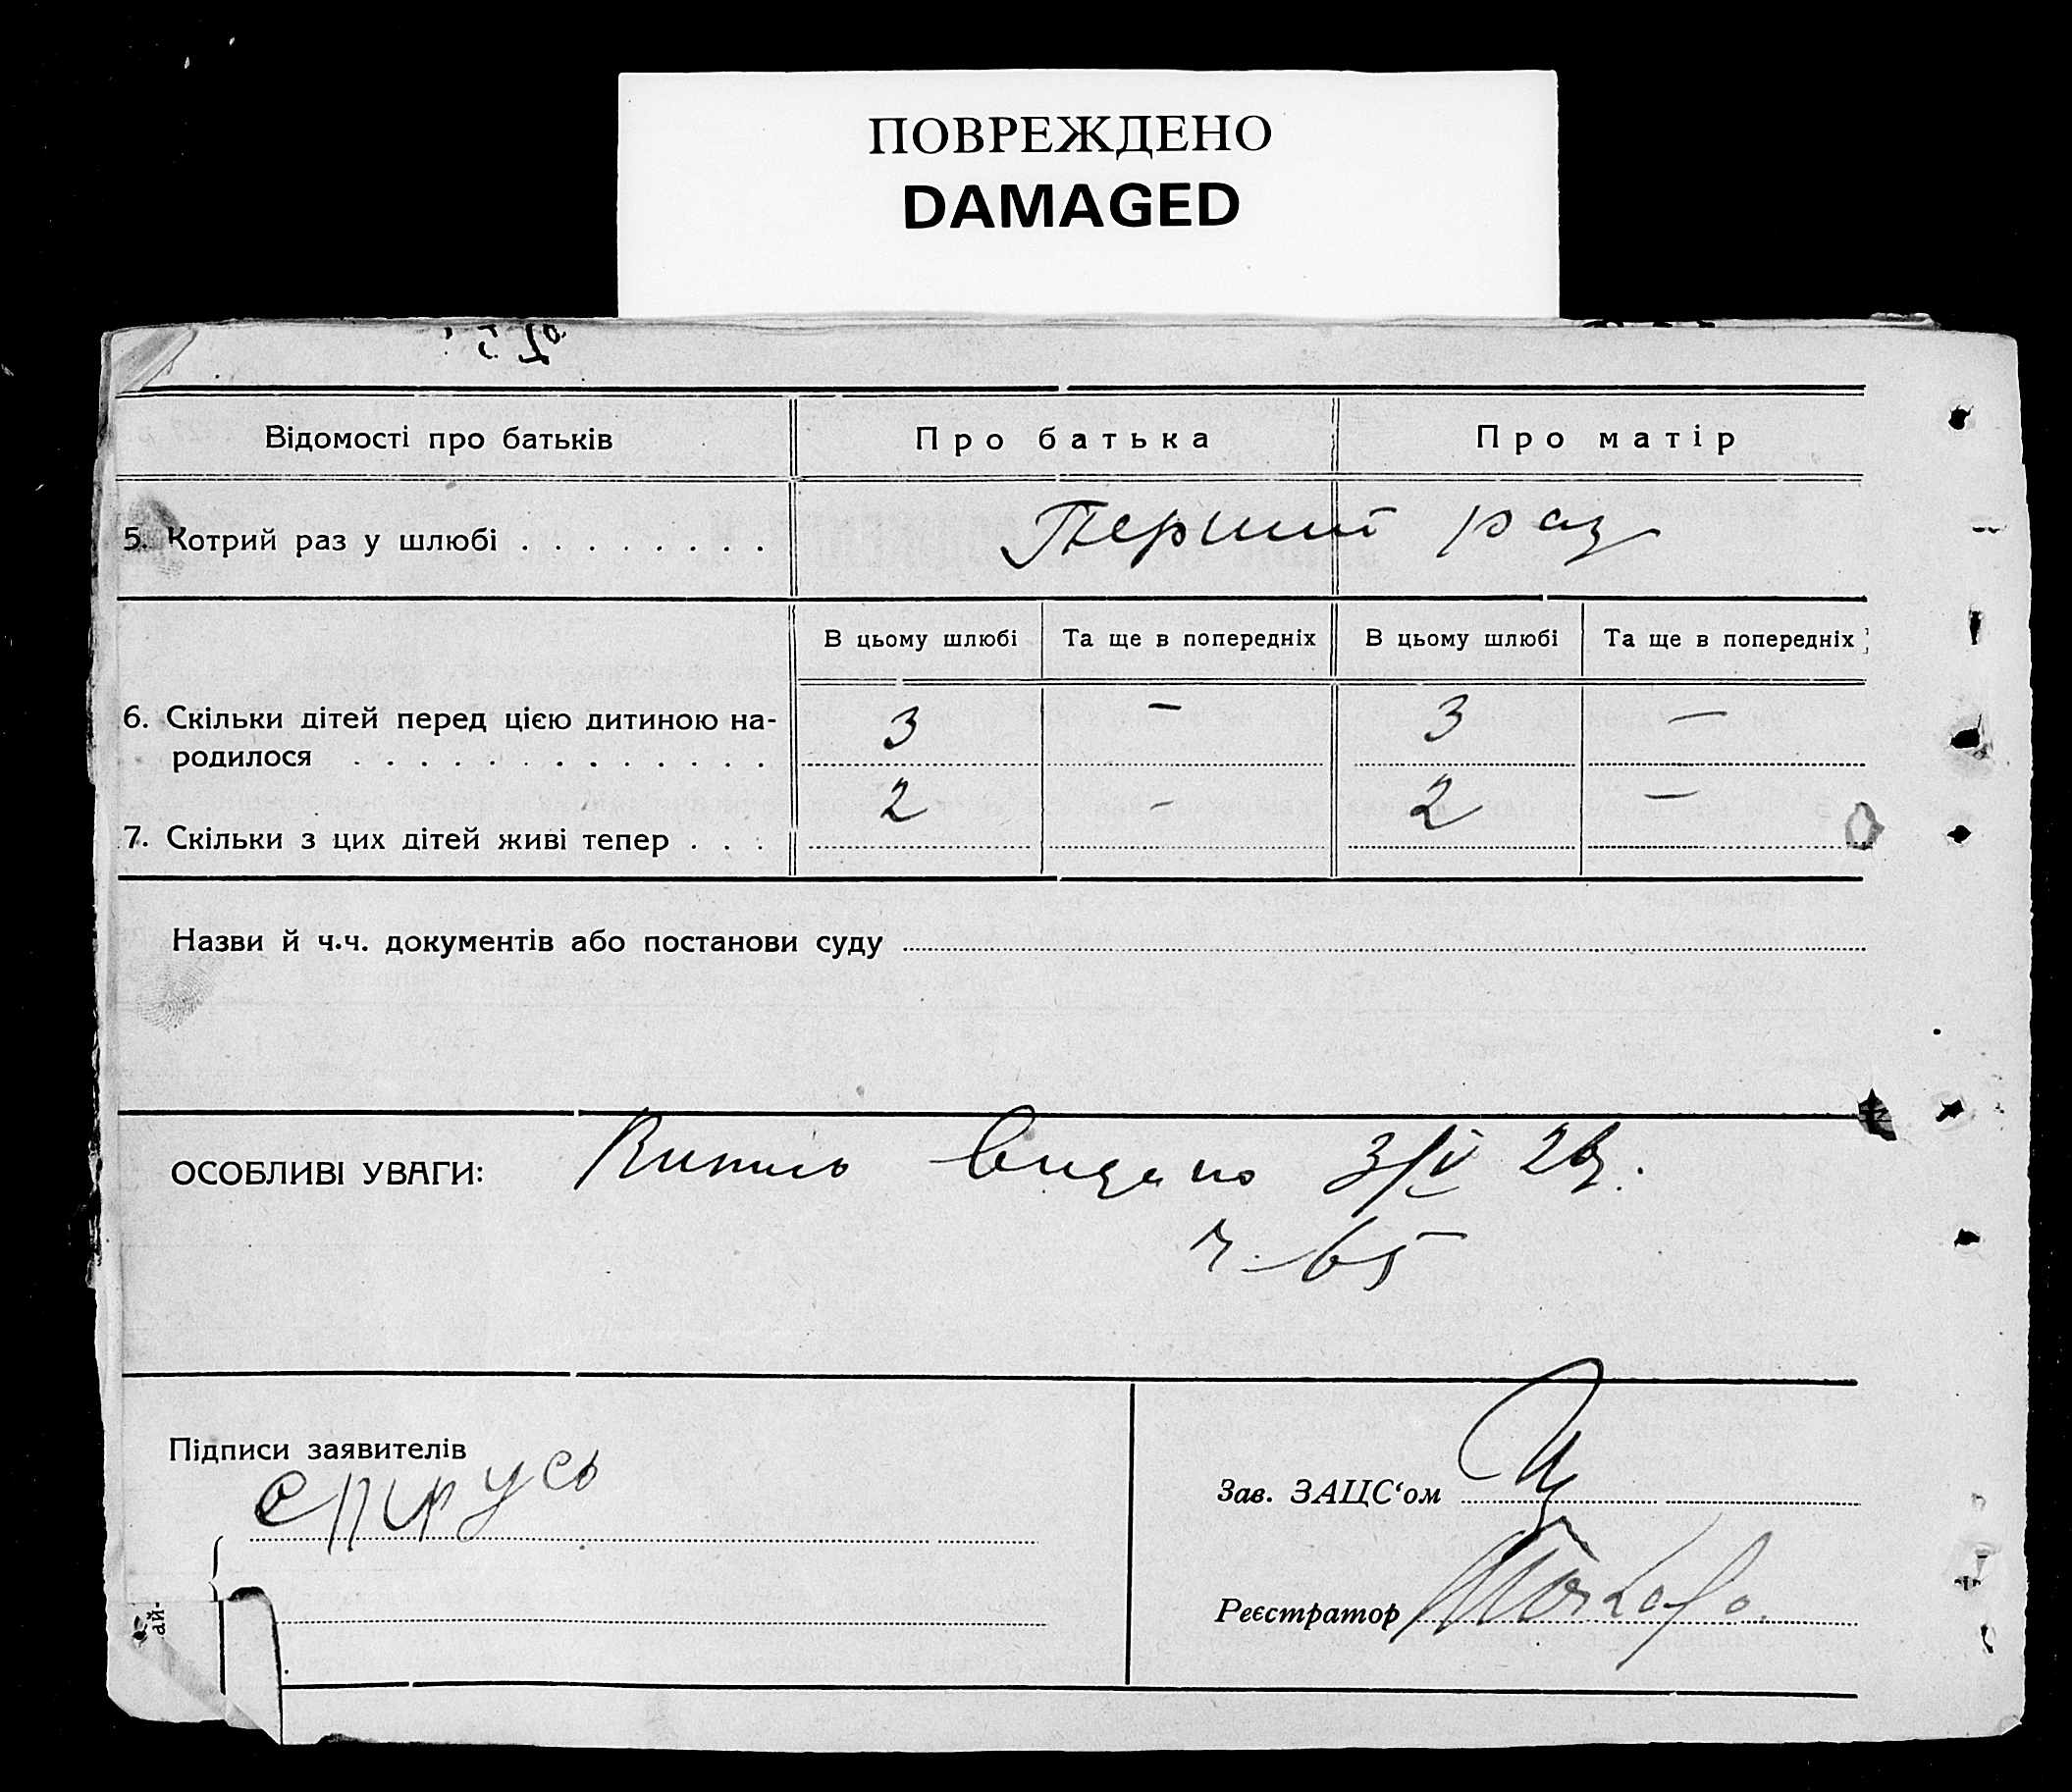 ПОВРЕЖДЕНО
DAMAGED
Відомості про батьків
Про батька
Про матір
5. Котрий раз у шлюбі . . . . . . . .
Перший раз
В цьому шлюбі
Та ще в попередніх
В цьому шлюбі
Та ще в попередніх
6. Скільки дітей перед цією дитиною на-
родилося . . . . . . . . . . . . .
3 — 3 —
7. Скільки з цих дітей живі тепер . . .
2 - 2 —
Назви й ч.ч. документів або постанови суду
ОСОБЛИВІ УВАГИ: Витяг видано 3/V
ч. 65
Підписи заявителів
Зав. ЗАЦС‘ом
Реєстратор
ай-